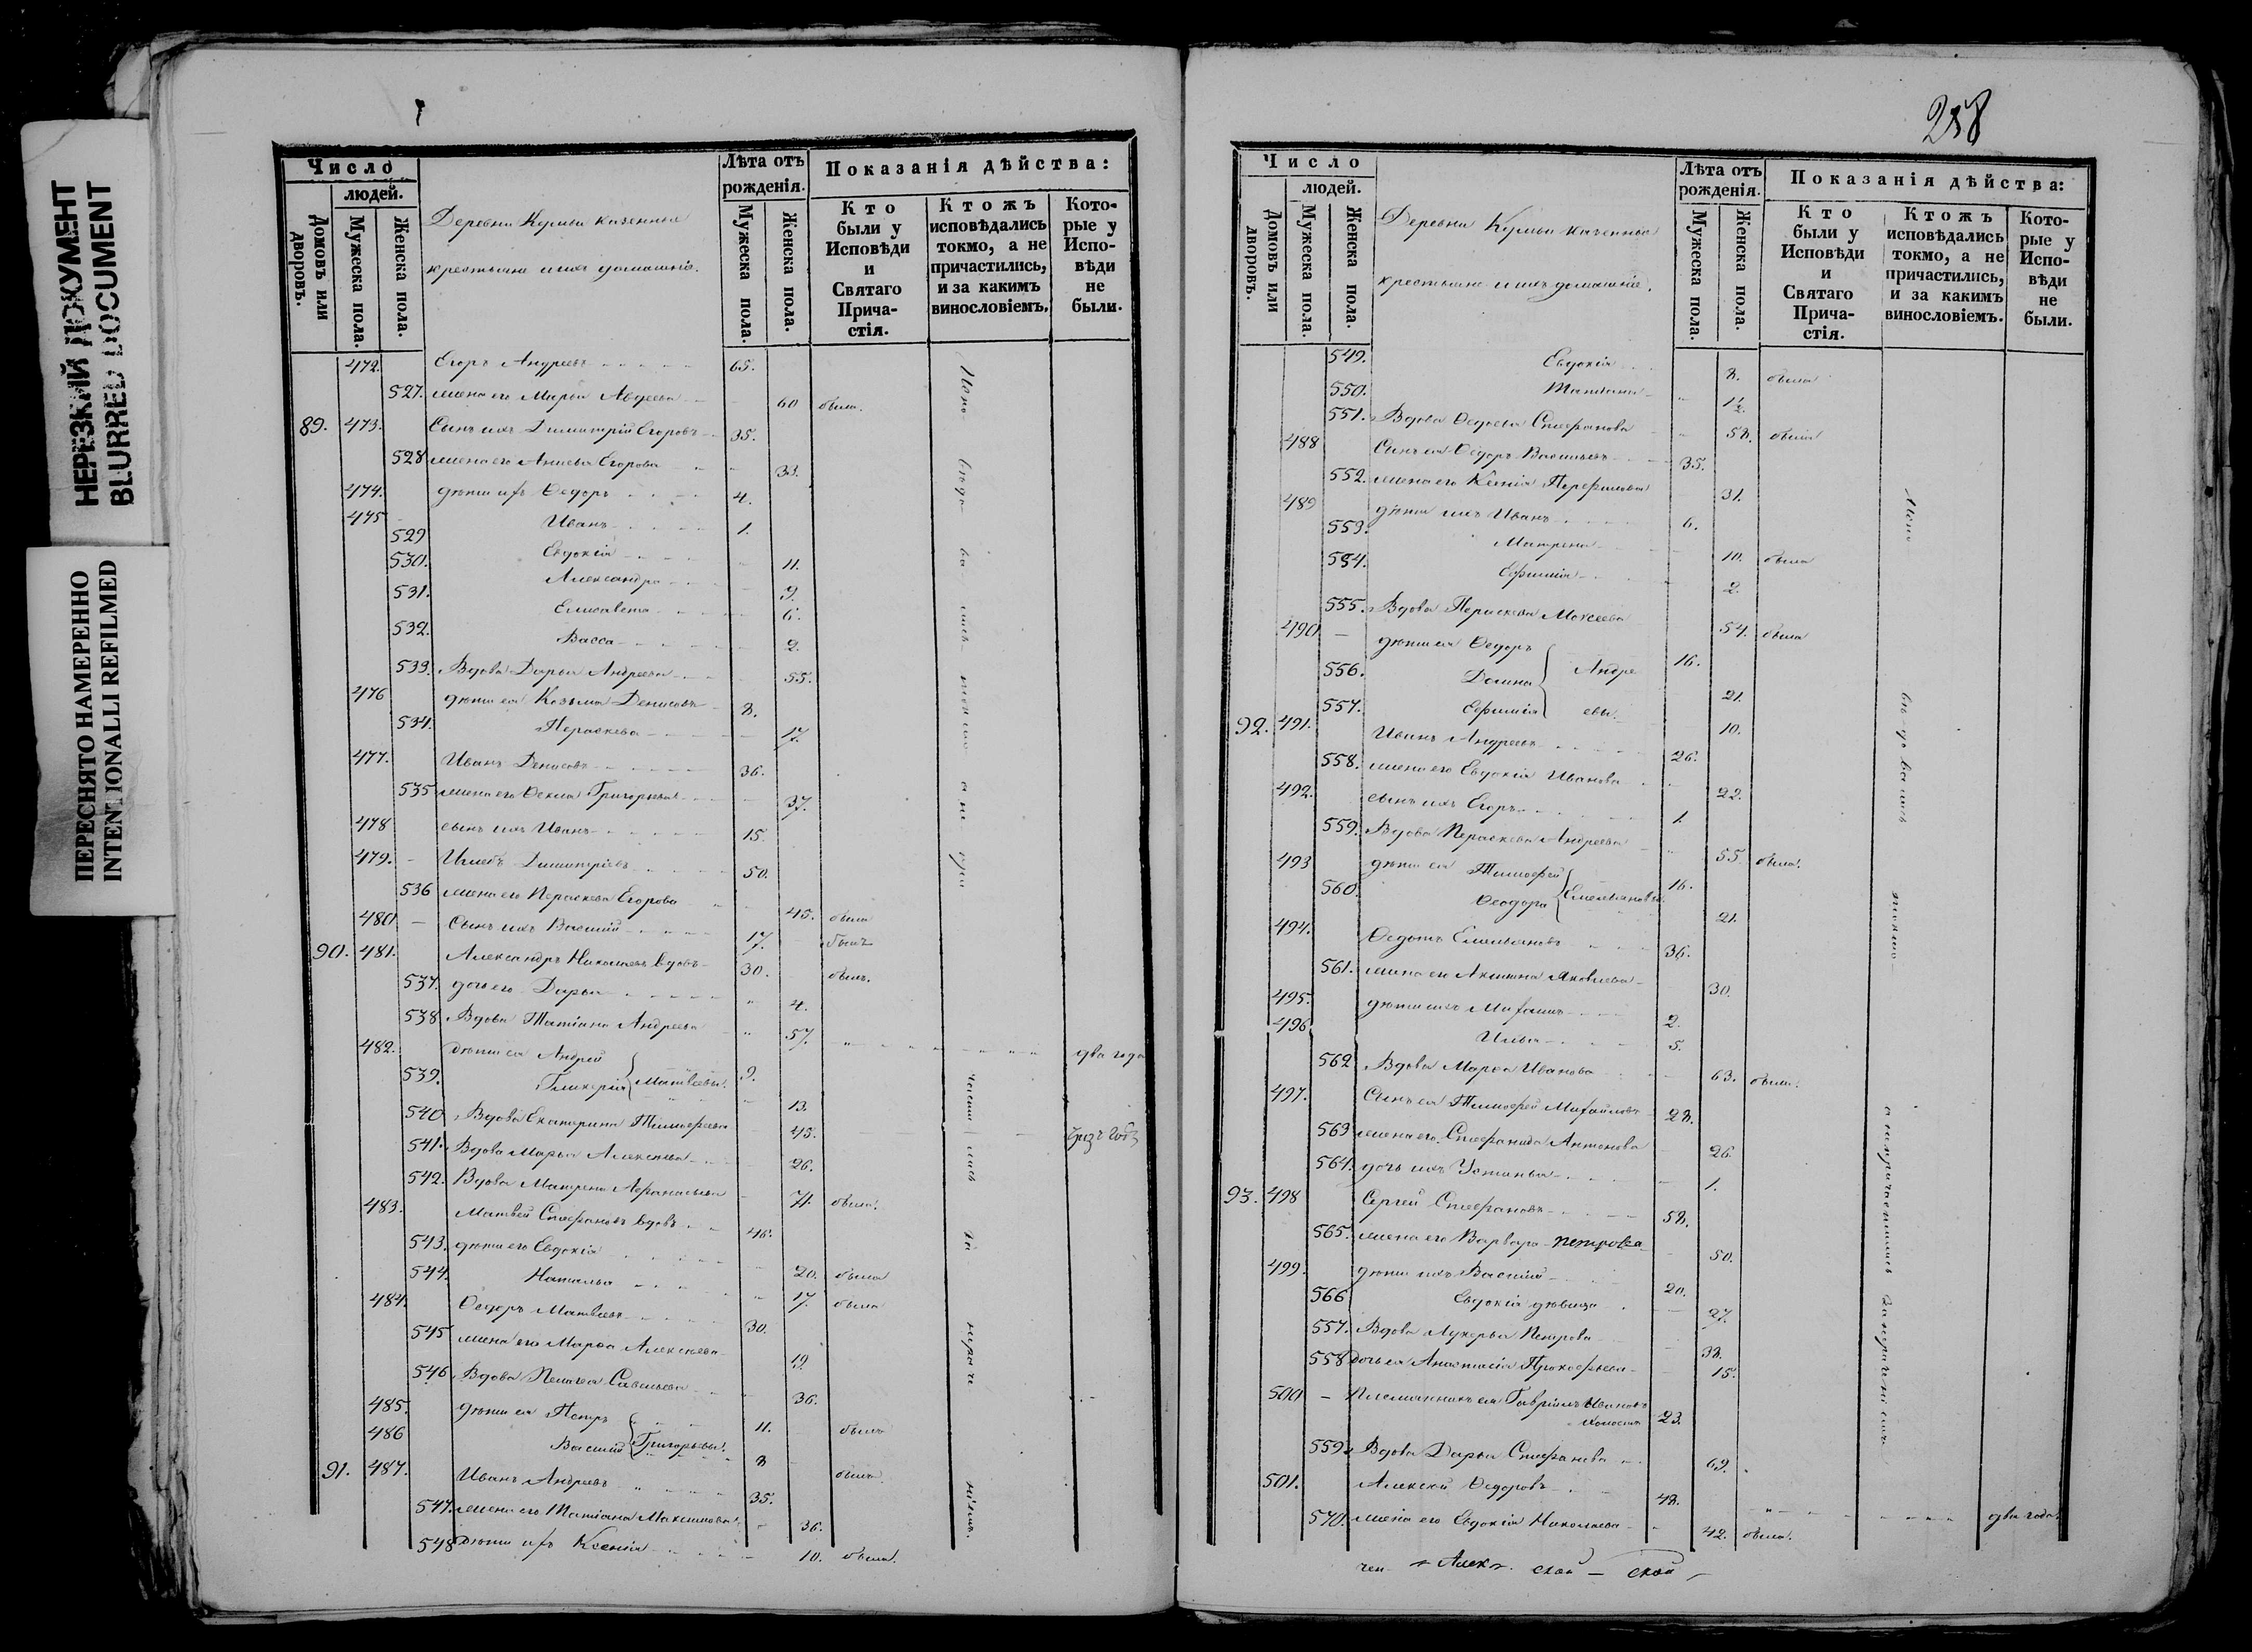 НЕРЕЗКИЙ ДОКУМЕНТ
BLURRED DOCUMENT
ПЕРЕСНЯТО НАМЕРЕННО
INTENTIONALLI REFILMED
Число
людей.
Домовъ или дворовъ.
Мужеска пола.
Женска пола.
Деревни казенные
крестьяне и ихъ домашніе.
Лѣта отъ рожденія.
Мужеска пола.
Женска пола.
Показанія дѣйства:
Кто были у Исповѣди и Святаго Прича-стія.
Ктожъ исповѣдались токмо, а не причастились, и за какимъ винословіемъ.
Кото-рые у Испо-вѣди не были.
472. Егоръ Андреевъ 65.
527. жена его Марья Авдеева 60 была.
89. 473. Сынъ ихъ Димитрій Егоровъ 35.
528 жена его Егорова 33.
474. дѣти ихъ Ѳедоръ 4.
475 Иванъ 1.
529 Евдокія 11.
530. Александра 9.
531. Елисавета 6.
532. Васса 2.
533. Вдова Дарья Андреева 55.
476 дѣти ея Козьма Денисовъ 8.
534. Параскева 17.
477. Иванъ Денисовъ 36.
535 жена его Григорьева 37.
478 сынъ ихъ Иванъ 15.
479. - Димитріевъ 50.
536 жена его Параскева Егорова 45. была
480. - Сынъ ихъ Василій 17. былъ
90. 481. Александръ Николаевъ вдовъ 30. былъ.
537. дочь его Дарья 4.
538 Вдова Татіана Андреева 57. два года
482. Дѣти ея Андрей 9.
539. Гликерія Матвѣевы. 13.
540. Вдова Екатерина Тимоѳеева 45. чрезъ годъ
541. Вдова Марья Алексѣева 26.
542. Вдова Матрена Аѳанасьева 71. была.
483. Матвей Стефановъ вдовъ 46.
543. дѣти его Евдокія 20. была
544. Наталья 17. была
484. Ѳедоръ Матвѣевъ 30.
545 жена его Марѳа Алексѣева 19.
546. Вдова Пелагея Савельева 36.
485. дѣти ея Петръ 11. былъ
486 Василій Григорьевы. 8
91. 487. Иванъ Андреевъ 35. былъ.
547. жена его Татіана Максимова 36.
548 Дѣти ихъ Ксенія 10. была.
258
Число
людей.
Домовъ или дворовъ.
Мужеска пола.
Женска пола.
Деревни казенные
крестьяне и ихъ домашніе.
Лѣта отъ рожденія.
Мужеска пола.
Женска пола.
Показанія дѣйства:
Кто были у Исповѣди и Святаго Прича-стія.
Ктожъ исповѣдались токмо, а не причастились, и за какимъ винословіемъ.
Кото-рые у Испо-вѣди не были.
549. Евдокія 8. была
550. Татіана 1½.
551. Вдова Ѳедосья Стефанова 58. была
488 Сынъ ея Ѳедоръ Васильевъ 35.
552. жена его Ксенія 31.
489 дѣти ихъ Иванъ 6.
553. Матрена 10. была
554. Евфимія 2.
555. Вдова Параскева Мокеева 54. была
490 - дѣти ея Ѳедоръ 16.
556. Домна Андре 21.
557. Евфимія евы. 10.
92. 491. Иванъ Андреевъ 26.
558. жена его Евдокія Иванова 22.
492. сынъ ихъ Егоръ 1.
559. Вдова Параскева Андреева 55. была.
493 дѣти ея Тимофей 16.
560. Ѳеодора Емельяновы. 21.
494. Ѳедотъ Емельяновъ 36.
561. жена его Яковлева 30.
495. дѣти ихъ Михаилъ 2.
496 Илья 5.
562 Вдова Марѳа Иванова 63. была.
497. Сынъ ея Тимофей Михайловъ 28.
563 жена его Стефанида Антонова 26.
564. дочь ихъ Устинья 1.
93. 498 Сергей Стефановъ 58.
565. жена его Варвара Петрова 50.
499. дѣти ихъ Василій 20.
566 Евдокія дѣвица 27.
557. Вдова Лукерья Петрова 38.
558 Дочь ея Анастасія Прокофьева 15.
500 - Племянникъ ея Гавріилъ Ивановъ
холостъ 23.
559. Вдова Дарья Стефанова 69.
501. Алексѣй Ѳедоровъ 48. два года.
570. жена его Евдокія Николаева 42. была.